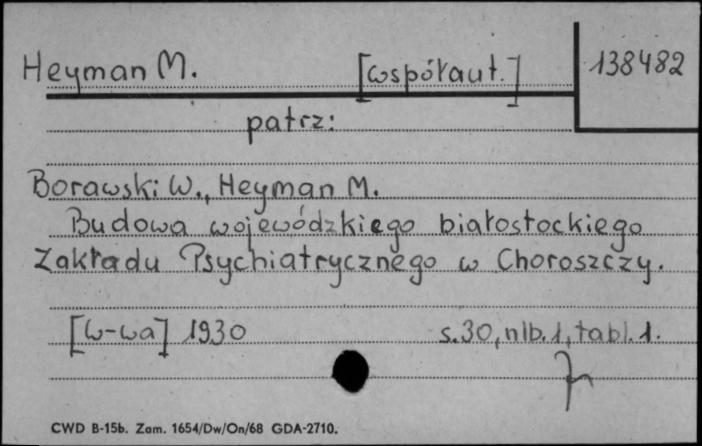 Heyman M. [współaut.] 138482
patrz:
Borawski W., Heyman M.
Budowa wojewódzkiego białostockiego
Zakładu Psychiatrycznego w Choroszczy.
[W-wa] 1930 s.30, nlb.1, tabl.1.
CWD B-15b. Zam. 1654/Dw/On/68 GDA-2710.